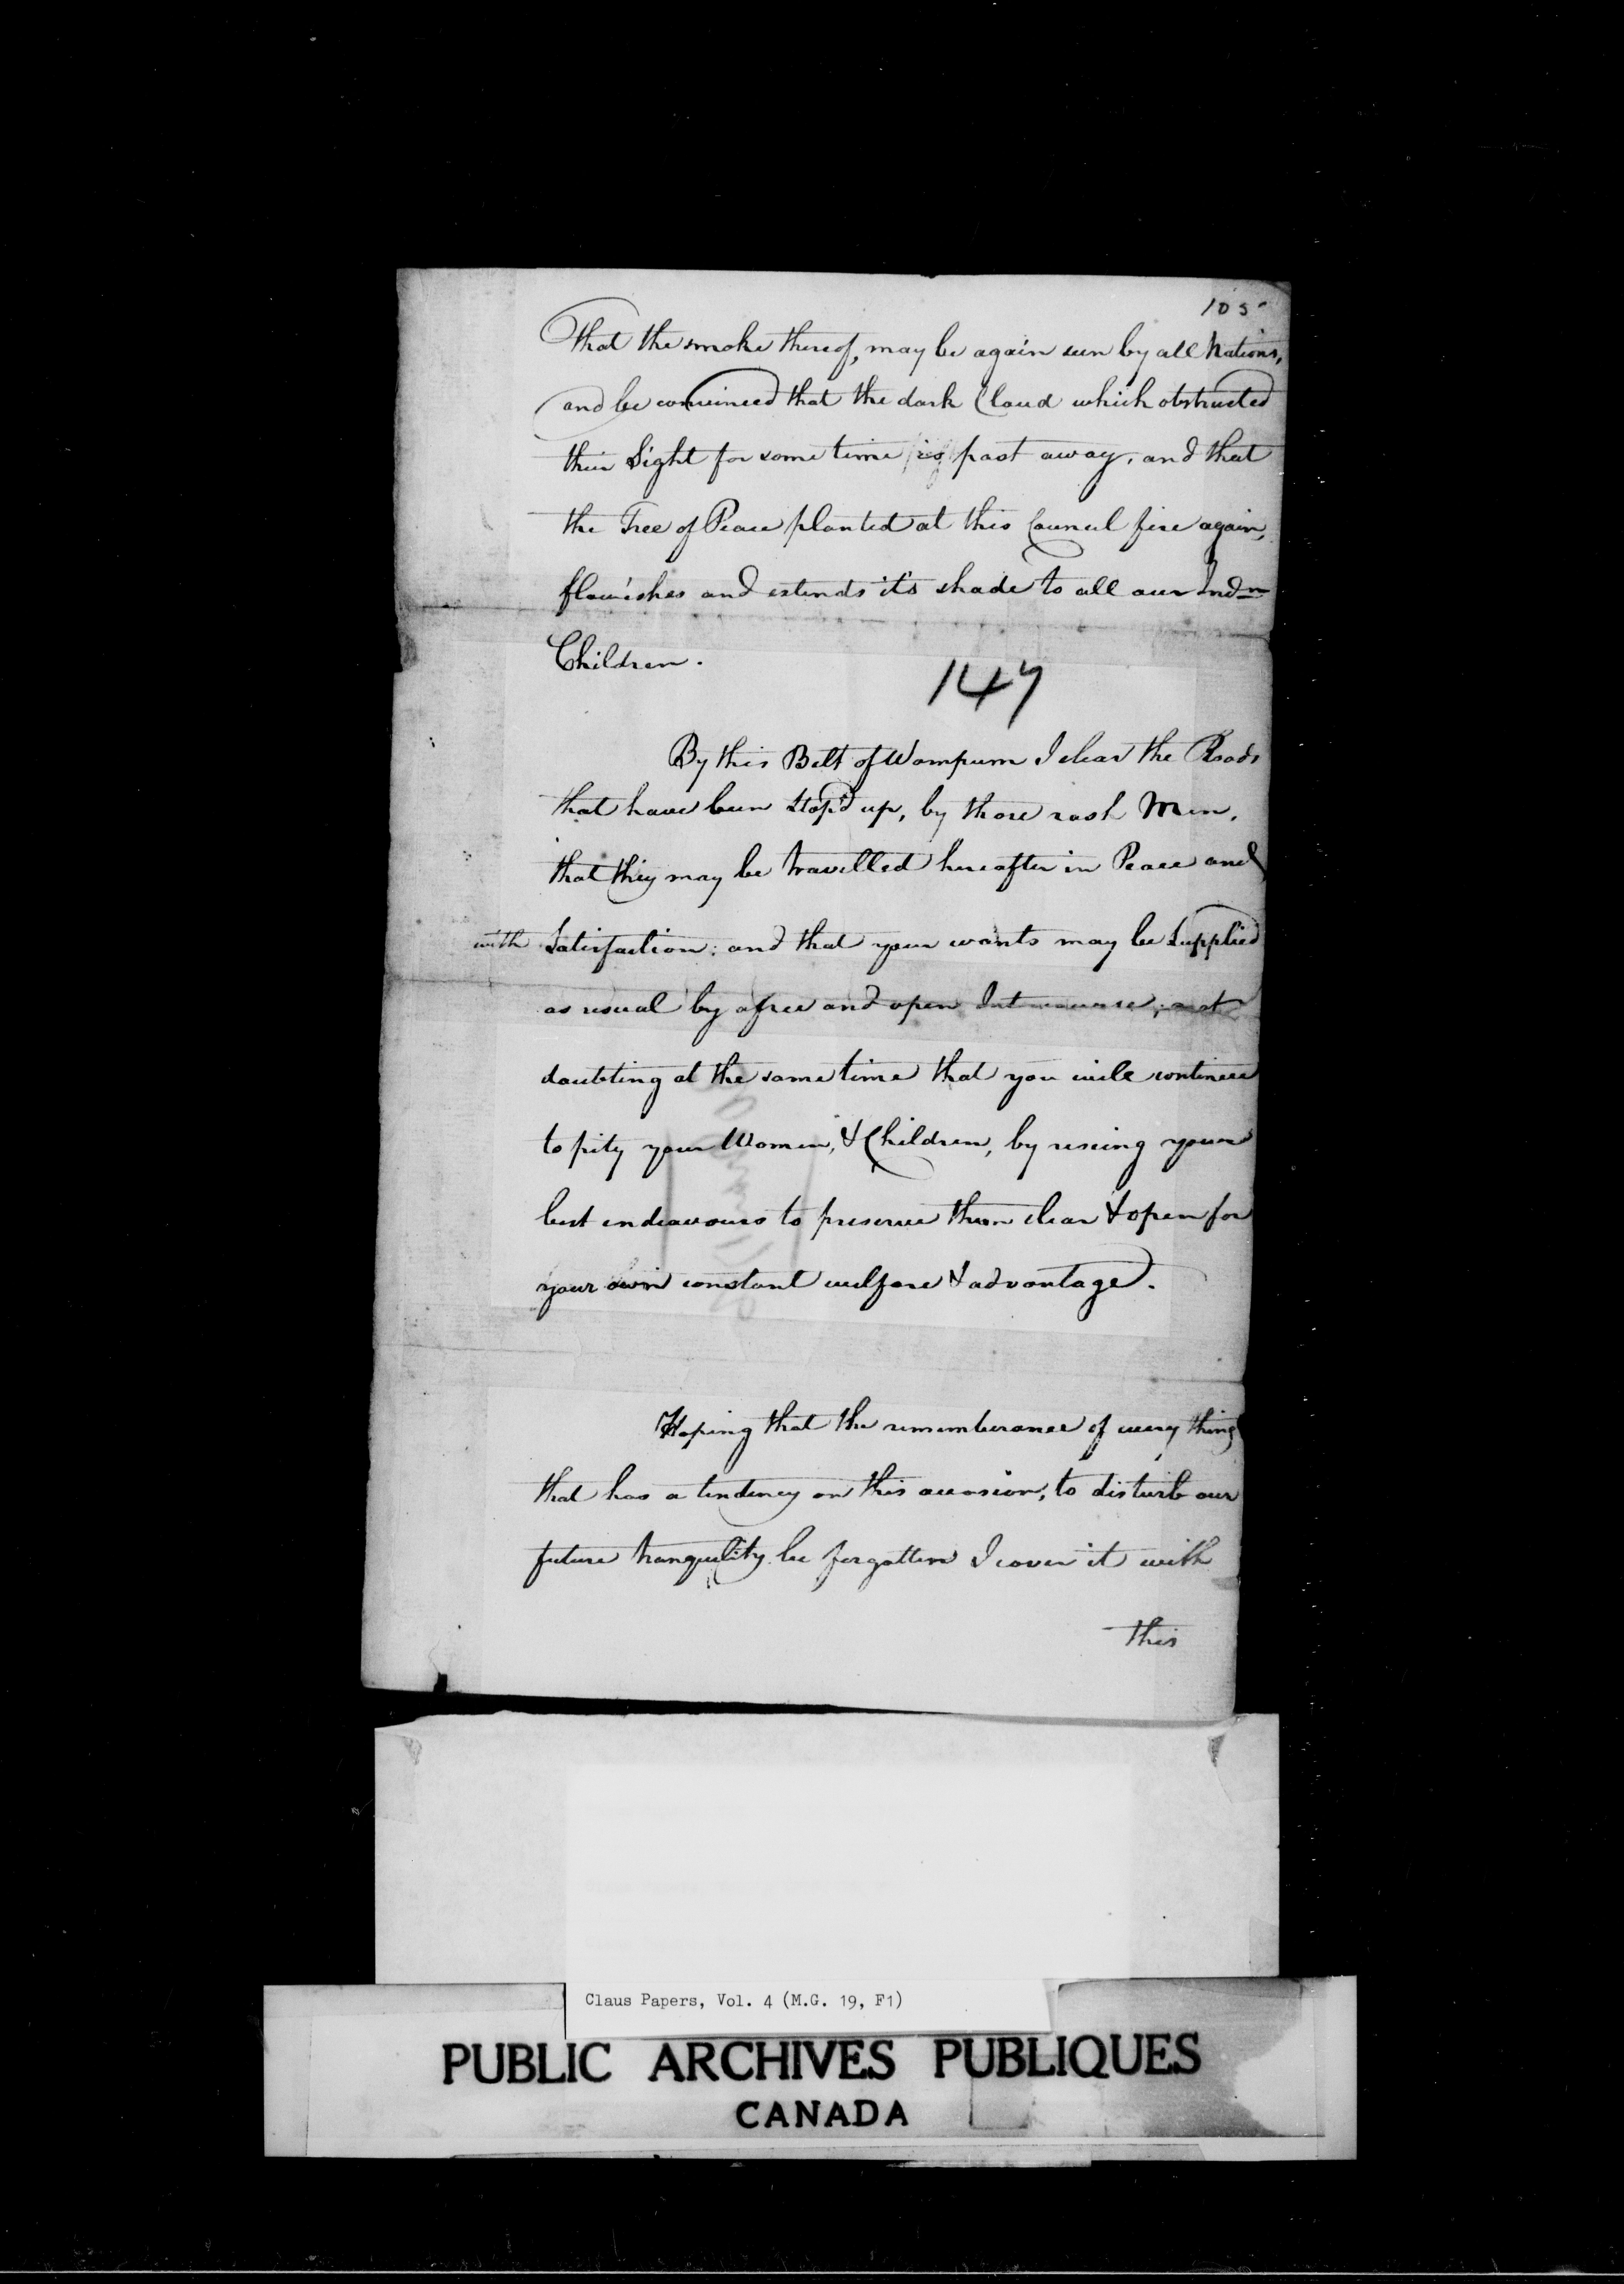 105
That the smoke thereof, may be again seen by all Nations,
and be convinced that the dark Cloud which obstructed
their Sight for some time is past away, and that
the Tree of Peace planted at this Council fire again,
flourishes and extends it's shade to all our Indn
Children.
147
By this Belt of Wampum I clear the Roads
that have been stop'd up, by those rash Men,
that they may be travelled hereafter in Peace and
with Satisfaction; and that your wants may be Supplied
as usual by a free and open Intercourse; not
doubting at the same time that you will continue
to pity your Women, & Children, by useing your
best endeavours to preserve them clear & open for
your own constant welfare & advantage.
Hoping that the rememberance of every thing
that has a tendency on this occasion, to disturb our
future tranquility be forgotten I cover it with
this
Claus Papers, Vol. 4 (M.G. 19, F1)
PUBLIC ARCHIVES PUBLIQUES
CANADA